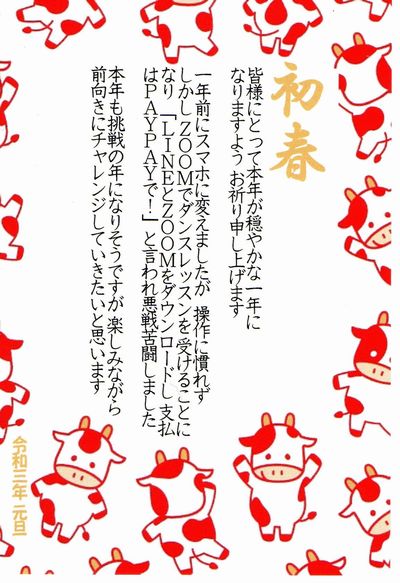 初春
皆様にとって本年が穏やかな一年に
なりますよう お祈り申し上げます
一年前にスマホに変えましたが 操作に慣れず
しかしZOOMでダンスレッスンを受けることに
なり 「LINEとZOOMをダウンロードし支払
はPAYPAYで！」と言われ悪戦苦闘しました
本年も挑戦の年になりそうですが 楽しみながら
前向きにチャレンジしていきたいと思います
令和三年 元旦